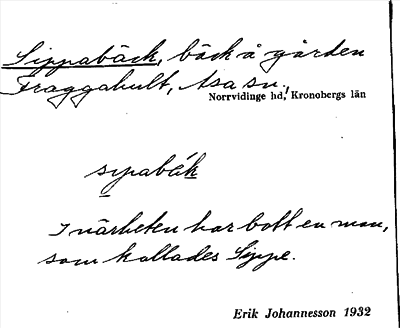 Sippabäck, bäck å gården
Fraggahult, Asa sn.,
Norrvidinge hd, Kronobergs län
sypabäk
I närheten har bott en man,
som kallades Sippe.
Erik Johannesson 1932